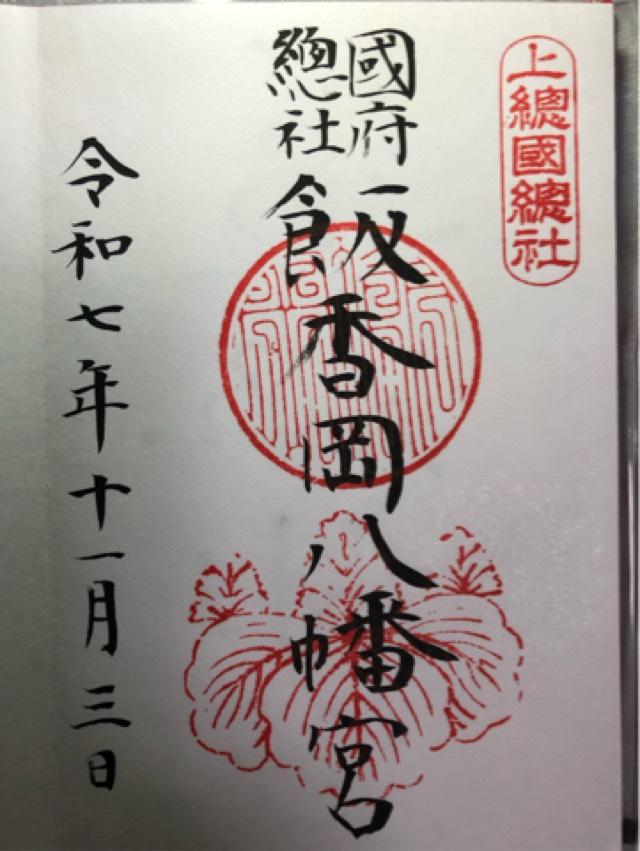 上總國總社
國府
總社
飯香岡八幡宮
令和七年十一月三日